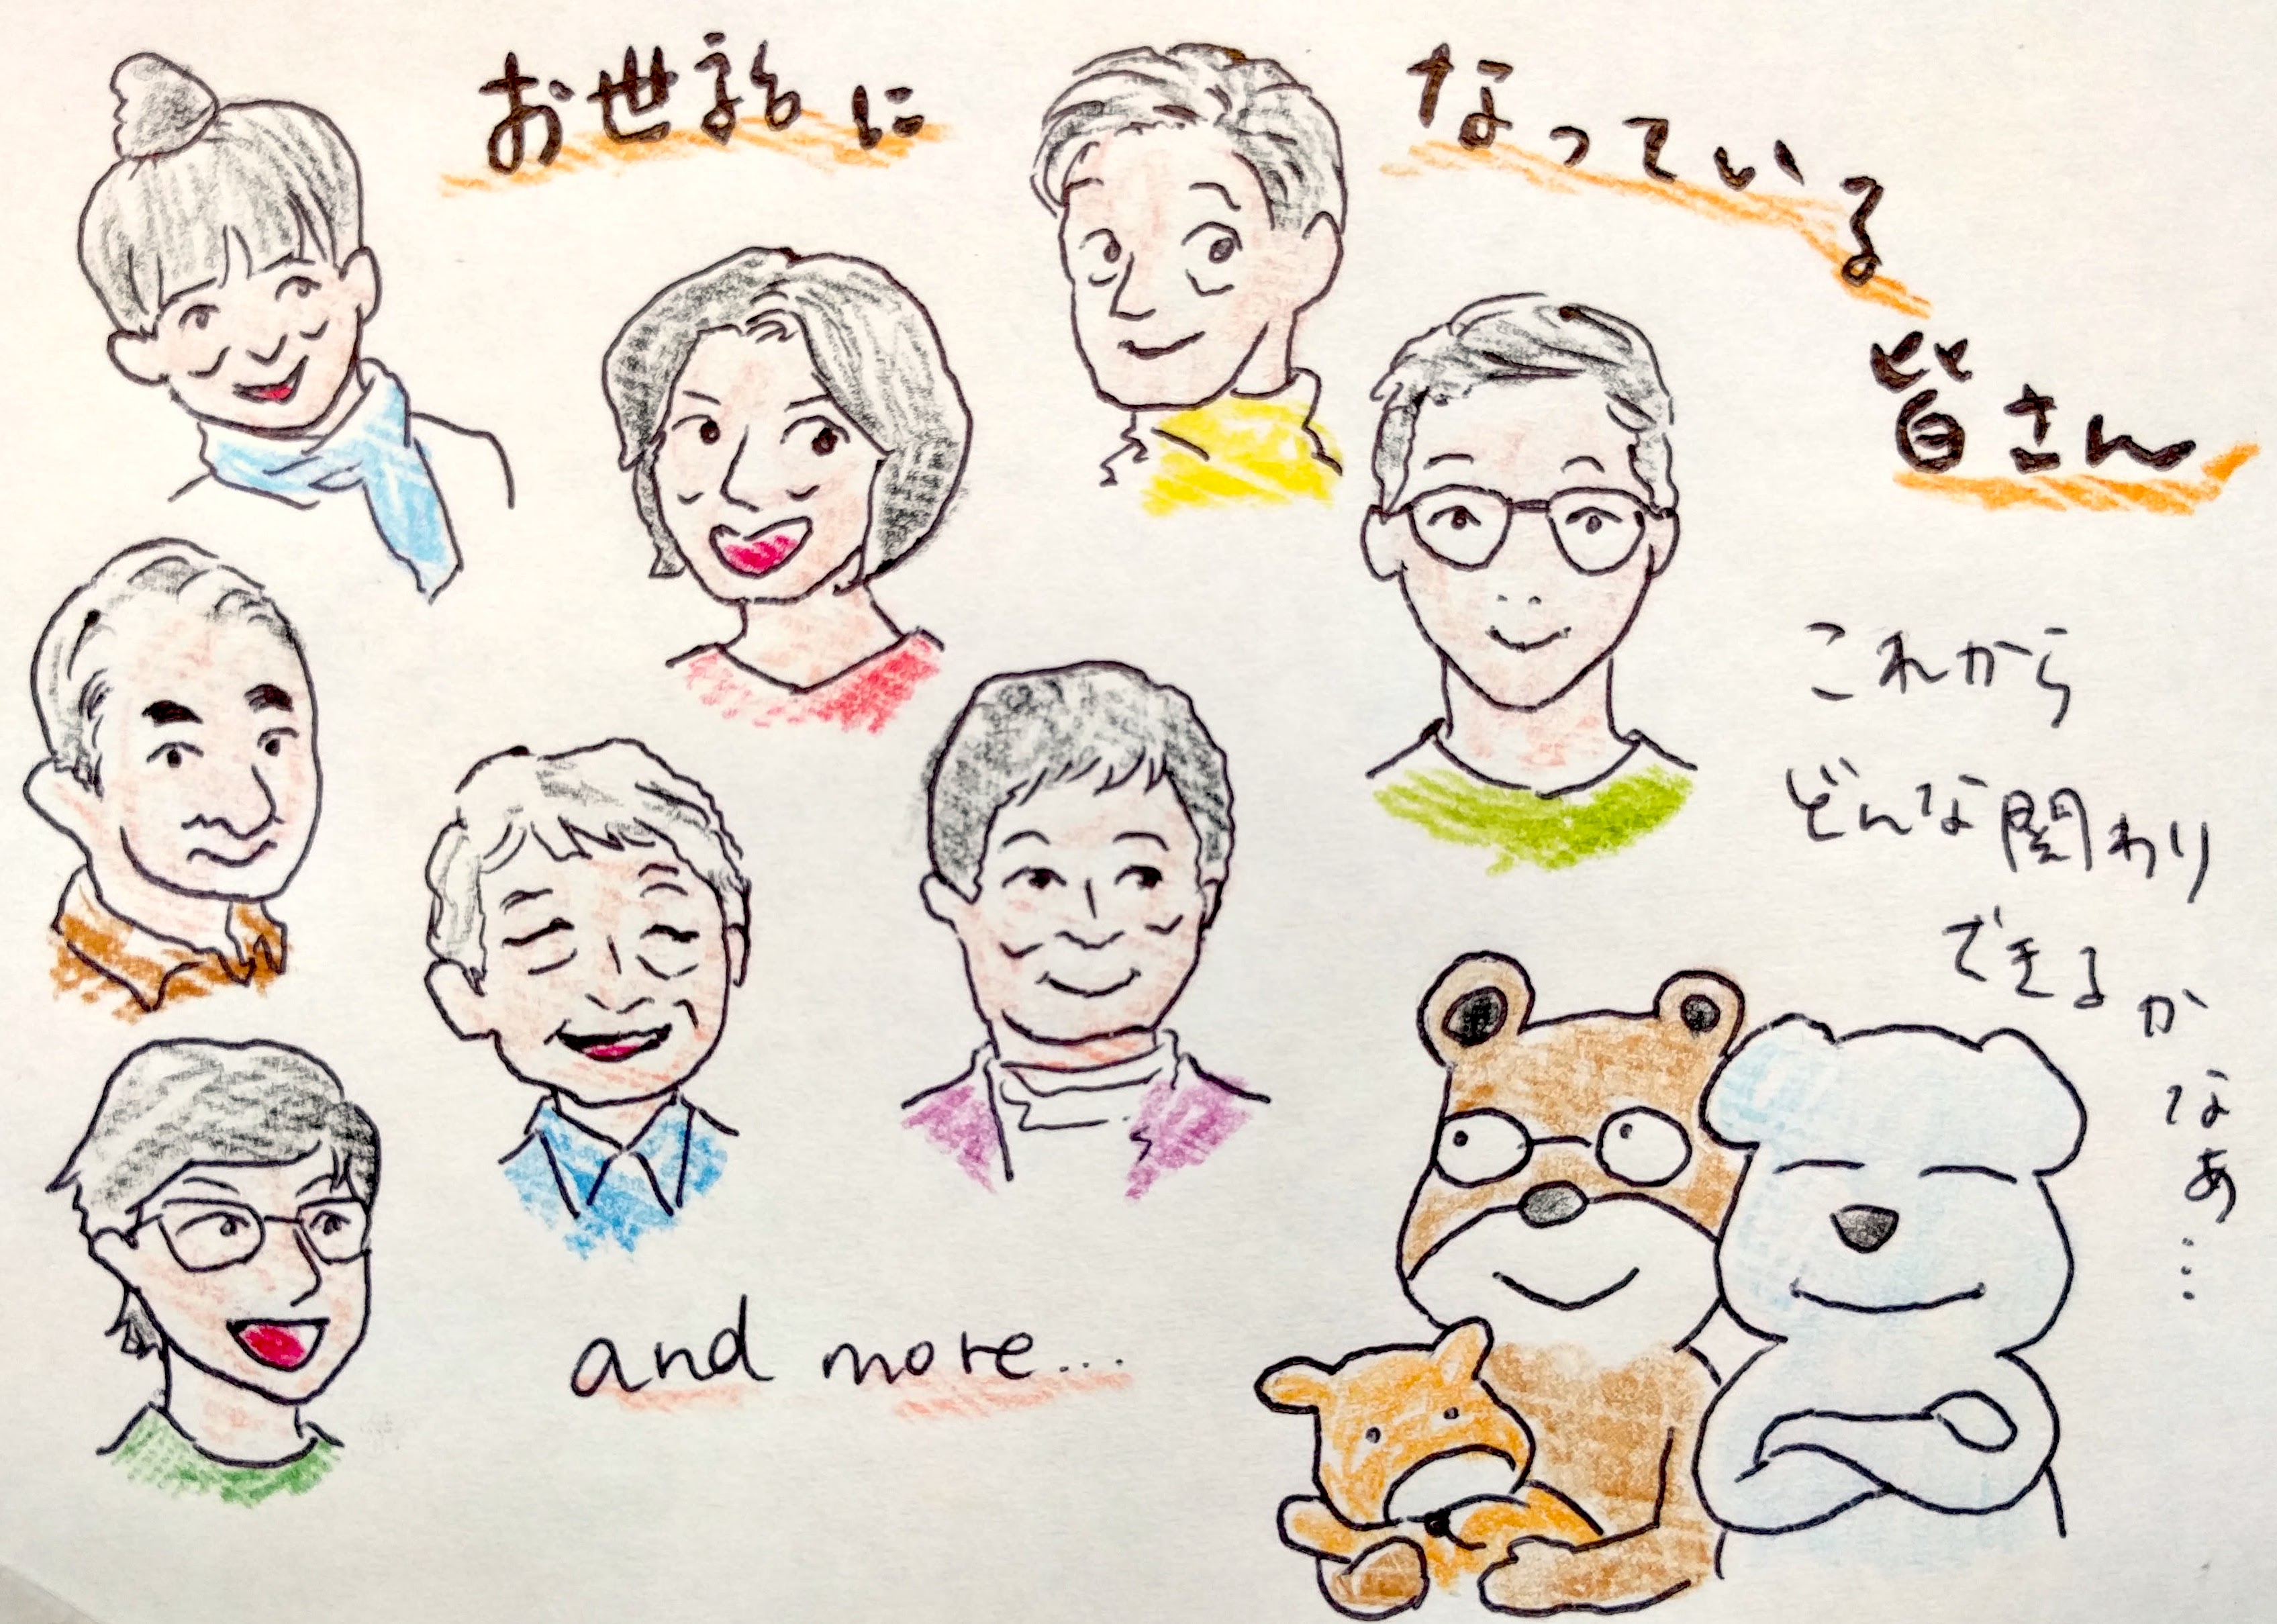 お世話に
なっている
皆さん
これから
どんな関わり
できる
かなあ…
and more....